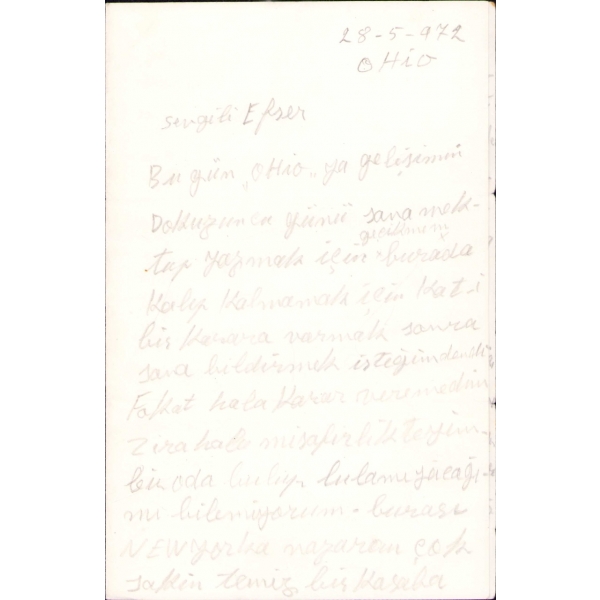 28-5-972
OHio
sevgili Efser
Bugün „OHio„ya gelişimin
Dokuzuncu günü sana mek-
gecikmem
tup yazmak için burada
Kalıp Kalmamak için Kat-i
bir Karara varmak sonra
sana bildirmek istiğimdendi
Fakat hala Karar veremedim
Zira hala misafirlikteyim-
bir oda bulup bulamıyacağı-
mı bilemiyorum- burası
NEWyorka nazaran çok
sakin temiz bir Kasaba